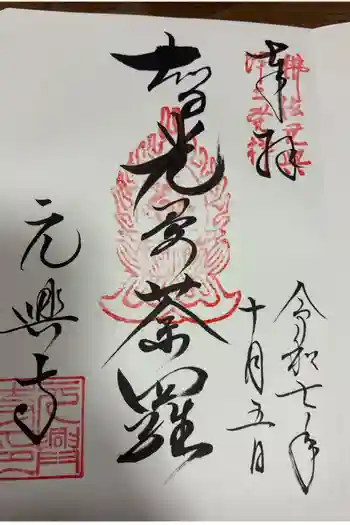 奉拝
令和七年
十月五日
智光曼荼羅
元興寺